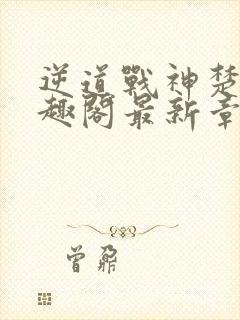 逆道戰神楚
趣閣最新章
曾鼐